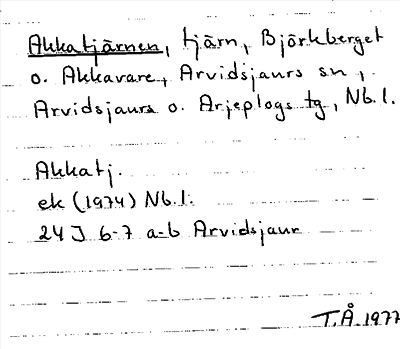 Akkatjärnen, tjärn, Björkberget
o. Akkavare, Arvidsjaurs sn,
Arvidsjaurs o. Arjeplogs tg, Nb.l.
Akkatj.
ek (1974) Nb.l.
24J 6-7 a-b Arvidsjaur
T.Å.1977